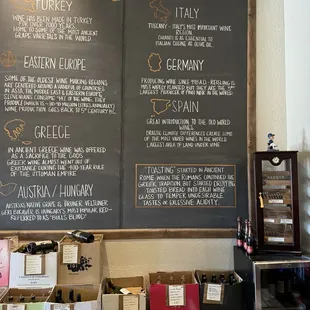 TURKEY
WINE HAS BEEN MADE IN TURKEY
FOR OVER 7000 YEARS.
HOME TO SOME OF THE MOST ANCIENT
GRAPE VARIETALS IN THE WORLD
EASTERN EUROPE
SOME OF THE OLDEST WINE MAKING REGIONS
ARE CENTERED AROUND A HANDFUL OF COUNTRIES
IN ASIA, THE MIDDLE EAST & EASTERN EUROPE.
WINE PRODUCTION GOES BACK TO 5TH CENTURY BC.
GREECE
IN ANCIENT GREECE WINE WAS OFFERED
AS A SACRIFICE TO THE GODS
GREEK WINE ALMOST WENT OUT OF
EXISTENCE DURING THE 400-YEAR RULE
OF THE OTTOMAN EMPIRE
AUSTRIA / HUNGARY
AUSTRIA'S NATIVE GRAPE IS GRUNER VELTLINER
HUNGARY'S MOST POPULAR RED
IS REFERRED TO AS BULLS BLOOD.
ITALY
TUSCANY - ITALY'S MOST IMPORTANT WINE
REGION.
CHIANTI IS AS ESSENTIAL TO
ITALIAN CUISINE AS OLIVE OIL.
GERMANY
PRODUCING WINE SINCE
PLANTED BUT
LARGEST PRODUCER OF
SPAIN
GREAT INTRODUCTION TO THE OLD WORLD
WINES.
DIVERSE CLIMATE DIFFERENCES CREATE SOME
OF THE MOST VARIED WINES IN THE WORLD
LARGEST AREA OF LAND UNDER VINE
"TOASTING" STARTED IN ANCIENT
ROME WHEN THE ROMANS CONTINUED THE
GREEK TRADITION BUT STARTED DROPPING
TOASTED BREAD INTO EACH WINE
GLASS TO TEMPER UNDESIRABLE
TASTES OR EXCESSIVE ACIDITY.